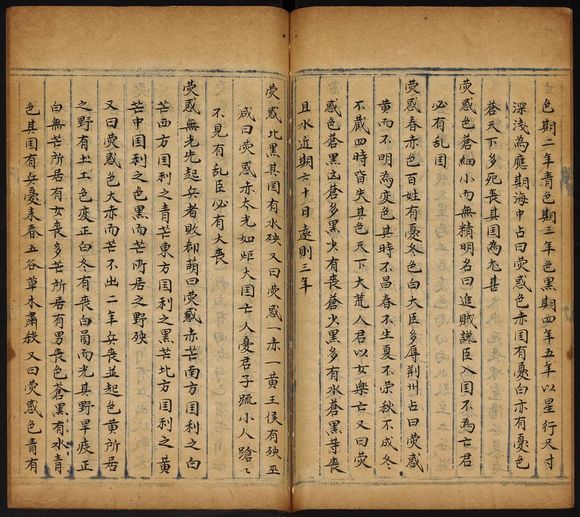 色期二年青色期三年色黑期四年五年以星行尺寸
深淺為應期海中占曰熒惑色赤国有憂白亦有憂色
蒼天下多死喪其国為尤甚
熒惑色蒼細小而無精明名曰進賊讒臣入国不為亡君
必有乱国
熒惑春赤色百姓有憂冬色白大臣多辱荆州占曰熒惑
黄而不明為变色其時不昌春不生夏不荣秋不成冬
不藏四時皆失其色天下大荒人君以女樂亡又曰熒
惑色蒼黑凶蒼多黑少有喪蒼少黑多有水蒼黑等喪
且水近期六十日遠則三年
熒惑北黑其国有水殃又曰熒惑一赤一黄王侯有殃巫
咸曰熒惑赤大光如炬大国亡人憂君子疏小人蹌〻
不見有乱臣必有大喪
熒惑無光先起兵者敗郗萌曰熒惑赤芒南方国利之白
芒西方国利之青芒東方国利之黑芒北方国利之黄
芒中国利之色黑而芒所居之野殃
又曰熒惑色大赤而芒不出二年兵喪並起色黄所居
之野有土工色疾正白冬有喪白晑而光其野旱疾正
白無芒所居有女喪多芒所居有男喪色蒼黑有水青
色其国有兵憂未春五谷草木肅殺又曰熒惑色青有